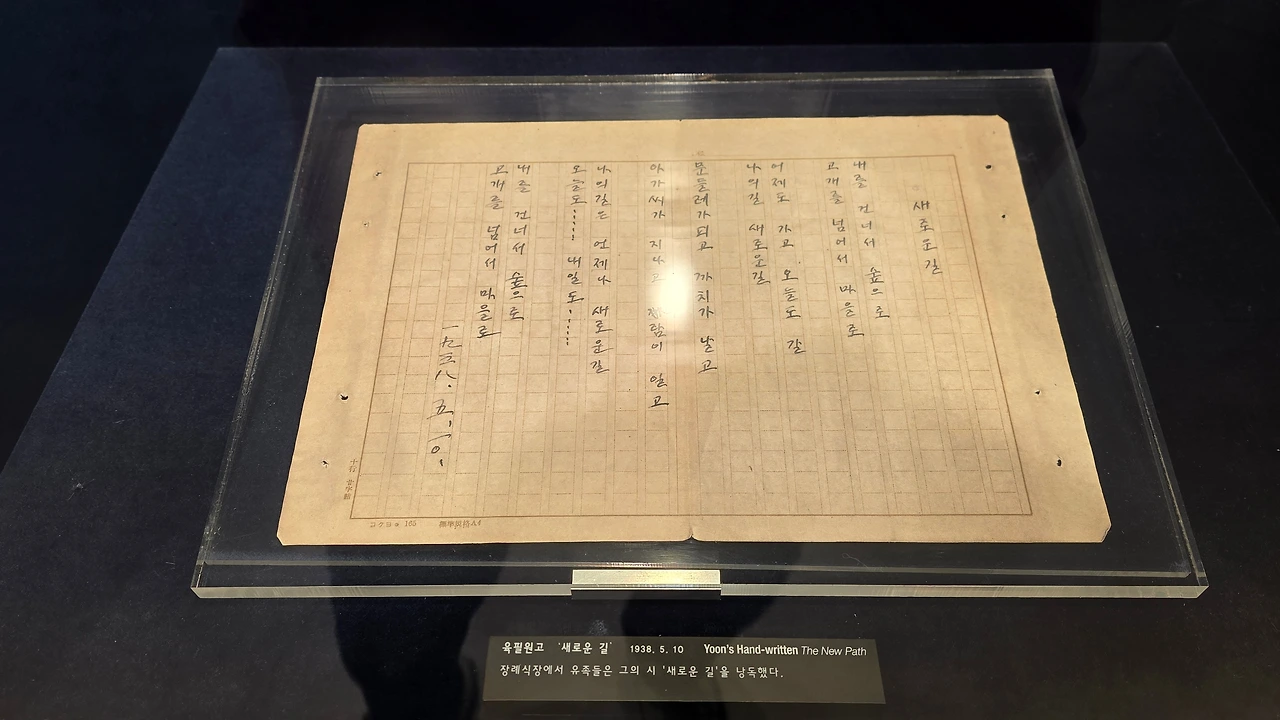 새로운길
내를 건너서 숲으로
고개를 넘어서 마을로
어제도 가고 오늘도 갈
나의길 새로운길
문들레가피고 까치가 날고
아가씨가 지나고 바람이 일고
나의길은 언제나 새로운길
오늘도…… 내일도……
내를 건너서 숲으로
고개를 넘어서 마을로
一九三八.五.一〇.
コクヨ 165
육필원고 '새로운 길' 1938. 5. 10 Yoon's Hand-written The New Path
장례식장에서 유족들은 그의 시 '새로운 길'을 낭독했다.